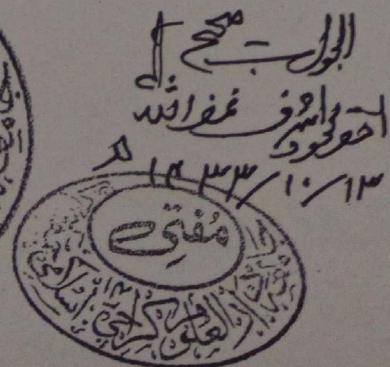 الجواب صحیح
احقر محمود اشرف غفر اللہ لہ
۱۴۳۳/۱۰/۱۳ھ
مفتی
دارالعلوم کراچی اسلامی